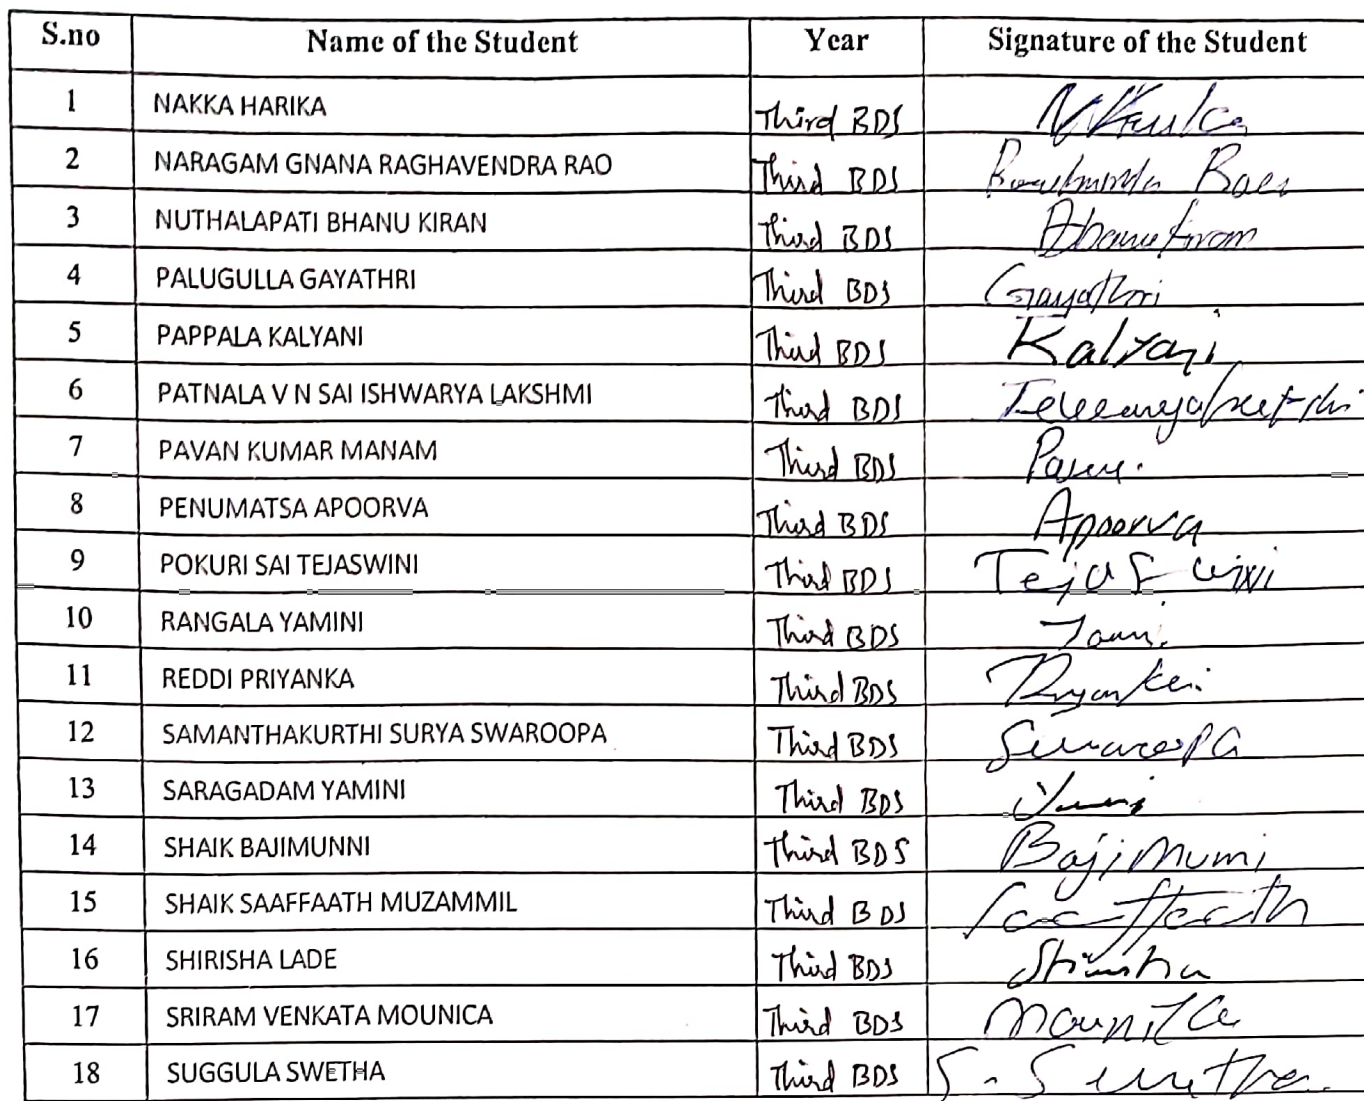 S.no Name of the Student Year Signature of the Student
1 NAKKA HARIKA Third BDS
2 NARAGAM GNANA RAGHAVENDRA RAO Third BDS
3 NUTHALAPATI BHANU KIRAN Third BDS
4 PALUGULLA GAYATHRI Third BDS Gayathri
5 PAPPALA KALYANI Third BDS Kalyani
6 PATNALA V N SAI ISHWARYA LAKSHMI Third BDS
7 PAVAN KUMAR MANAM Third BDS
8 PENUMATSA APOORVA Third BDS Apoorva
9 POKURI SAI TEJASWINI Third BDS Tejaswini
10 RANGALA YAMINI Third BDS
11 REDDI PRIYANKA Third BDS
12 SAMANTHAKURTHI SURYA SWAROOPA Third BDS
13 SARAGADAM YAMINI Third BDS
14 SHAIK BAJIMUNNI Third BDS Bajimunni
15 SHAIK SAAFFAATH MUZAMMIL Third BDS Saaffaath
16 SHIRISHA LADE Third BDS
17 SRIRAM VENKATA MOUNICA Third BDS
18 SUGGULA SWETHA Third BDS S. Swetha